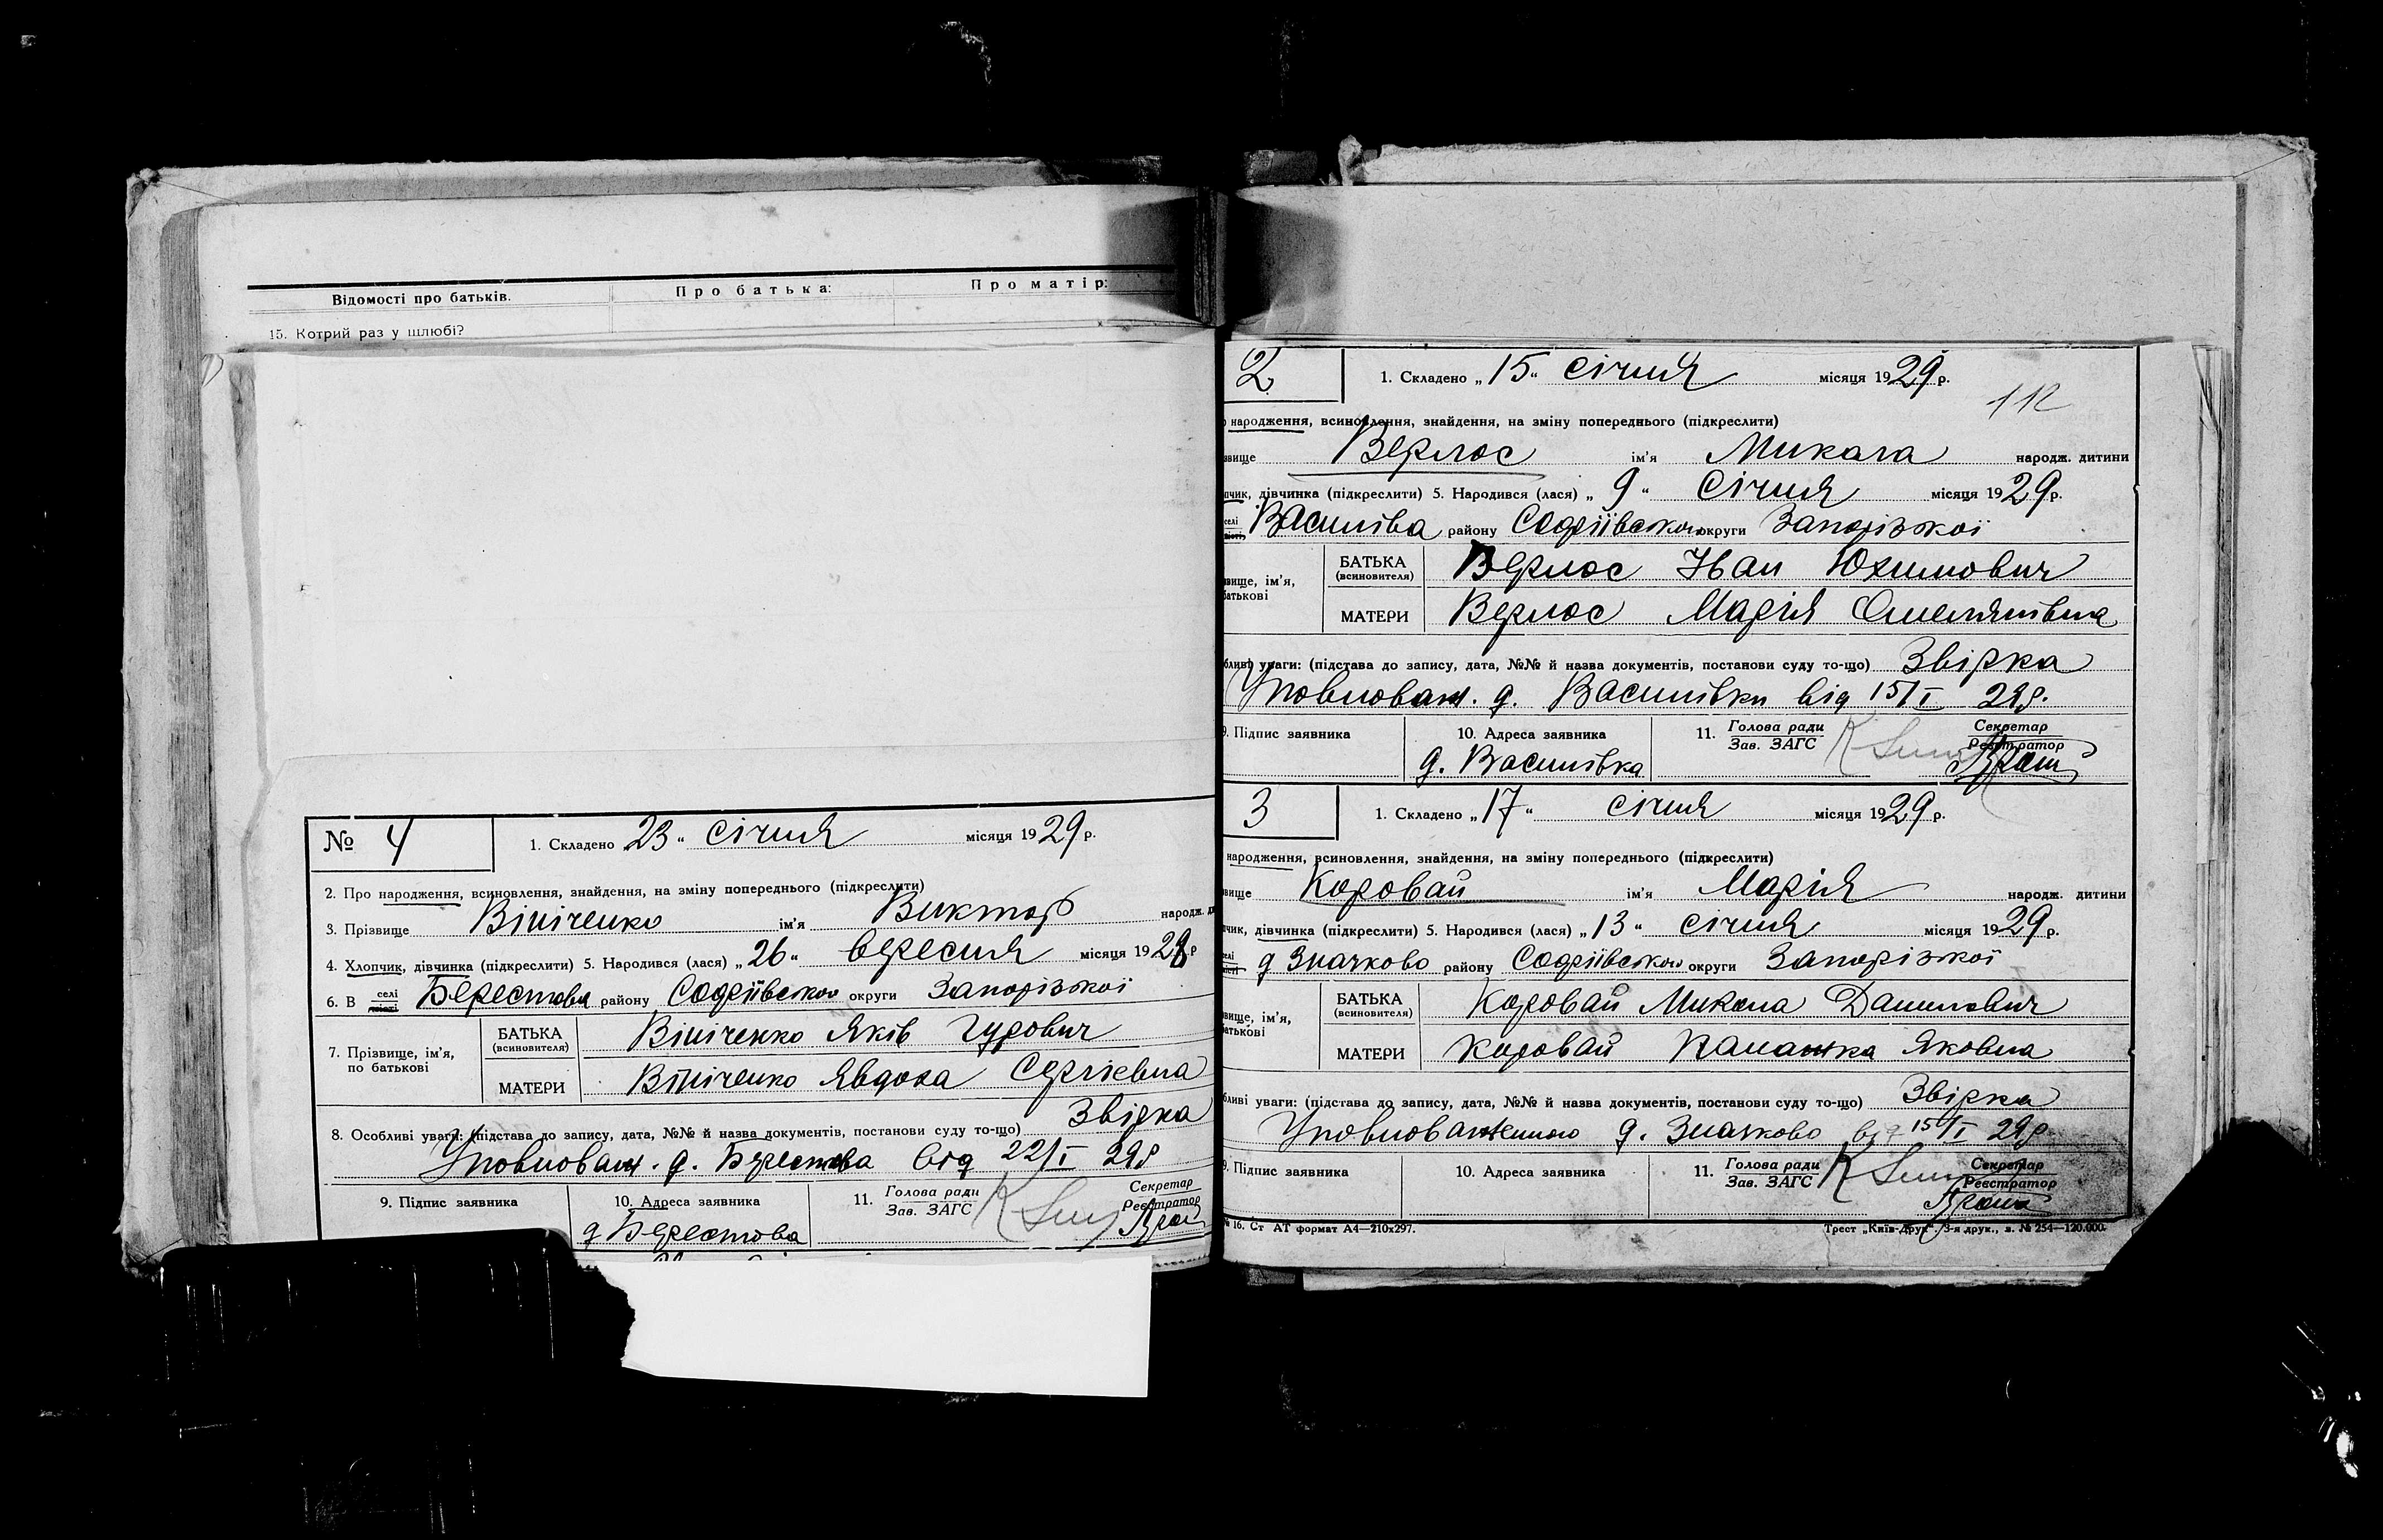 Відомості про батьків.
Про батька:
Про матір:
15. Котрий раз у шлюбі?
№ 4
1. Складено „23“ січня місяця 1929 р.
2. Про народження, всиновлення, знайдення, на зміну попереднього (підкреслити)
3. Прізвище Вініченко ім'я Виктор народж.
4. Хлопчик, дівчинка (підкреслити) 5. Народився (лася) „26“ вересня місяця 1928 р
6. В селі місті Берестова району Софіївського округи Запорізької
7. Прізвище, ім'я, по батькові
БАТЬКА (всиновителя) Вініченко Яків Гурович
МАТЕРИ Вініченко Явдоха Сергієвна
8. Особливі уваги: (підстава до запису, дата, №№ й назва документів, постанови суду то-що) Звірка
Уповноваж. д. Берестова від 22/I 29р
9. Підпис заявника
10. Адреса заявника
д Берестова
11. Голова ради
Зав. ЗАГС
Секретар
Реєстратор
2
1. Складено „15“ січня місяця 1929 р.
112
народження, всиновлення, знайдення, на зміну попереднього (підкреслити)
звище Верлос ім'я Микола народж. дитини
пчик, дівчинка (підкреслити) 5. Народився (лася) „9“ Січня місяця 1929 р.
селі місті Василівка району Софіївського округи Запорізької
звище, ім'я, батькові
БАТЬКА (всиновителя) Верлос Іван Юхимович
МАТЕРИ Верлос Марія Омелянівна
бливі уваги: (підстава до запису, дата, №№ й назва документів, постанови суду то-що) Звірка
Уповноваж. д. Василівки від 15/I 29р.
9. Підпис заявника
10. Адреса заявника
д. Василівка
11. Голова ради
Зав. ЗАГС
Секретар
Реєстратор
3
1. Складено „17“ січня місяця 1929 р.
народження, всиновлення, знайдення, на зміну попереднього (підкреслити)
звище Коровай ім'я Марія народж. дитини
пчик, дівчинка (підкреслити) 5. Народився (лася) „13“ січня місяця 1929 р.
селі місті д Значково району Софіївського округи Запорізької
звище, ім'я, батькові
БАТЬКА (всиновителя) Коровай Микола Данилович
МАТЕРИ Коровай Панажка Яковна
бливі уваги: (підстава до запису, дата, №№ й назва документів, постанови суду то-що) Звірка
Уповноваженного д. Значково від 15/I 29р.
9. Підпис заявника
10. Адреса заявника
11. Голова ради
Зав. ЗАГС
Секретар
Реєстратор
№ 16. Ст АТ формат А4—210х297.
Трест „Київ-Друк“, 3-я друк., з. № 254—120.000.